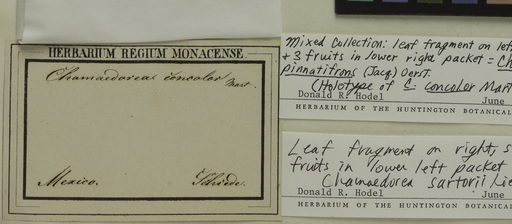 HERBARIUM REGIUM MONACENSE.
Chamaedorea concolor Mart.
Mexico. Schiede.
Mixed Collection: leaf fragment on left
+ 3 fruits in lower right packet = Ch
pinnatifrons (Jacq.) Oerst.
(Holotype of C. concolor Mart
Donald R. Hodel June
HERBARIUM OF THE HUNTINGTON BOTANICAL
Leaf fragment on right, s
fruits in lower left packet
Chamaedorea sartorii Lie
Donald R. Hodel June
HERBARIUM OF THE HUNTINGTON BOTANICAL